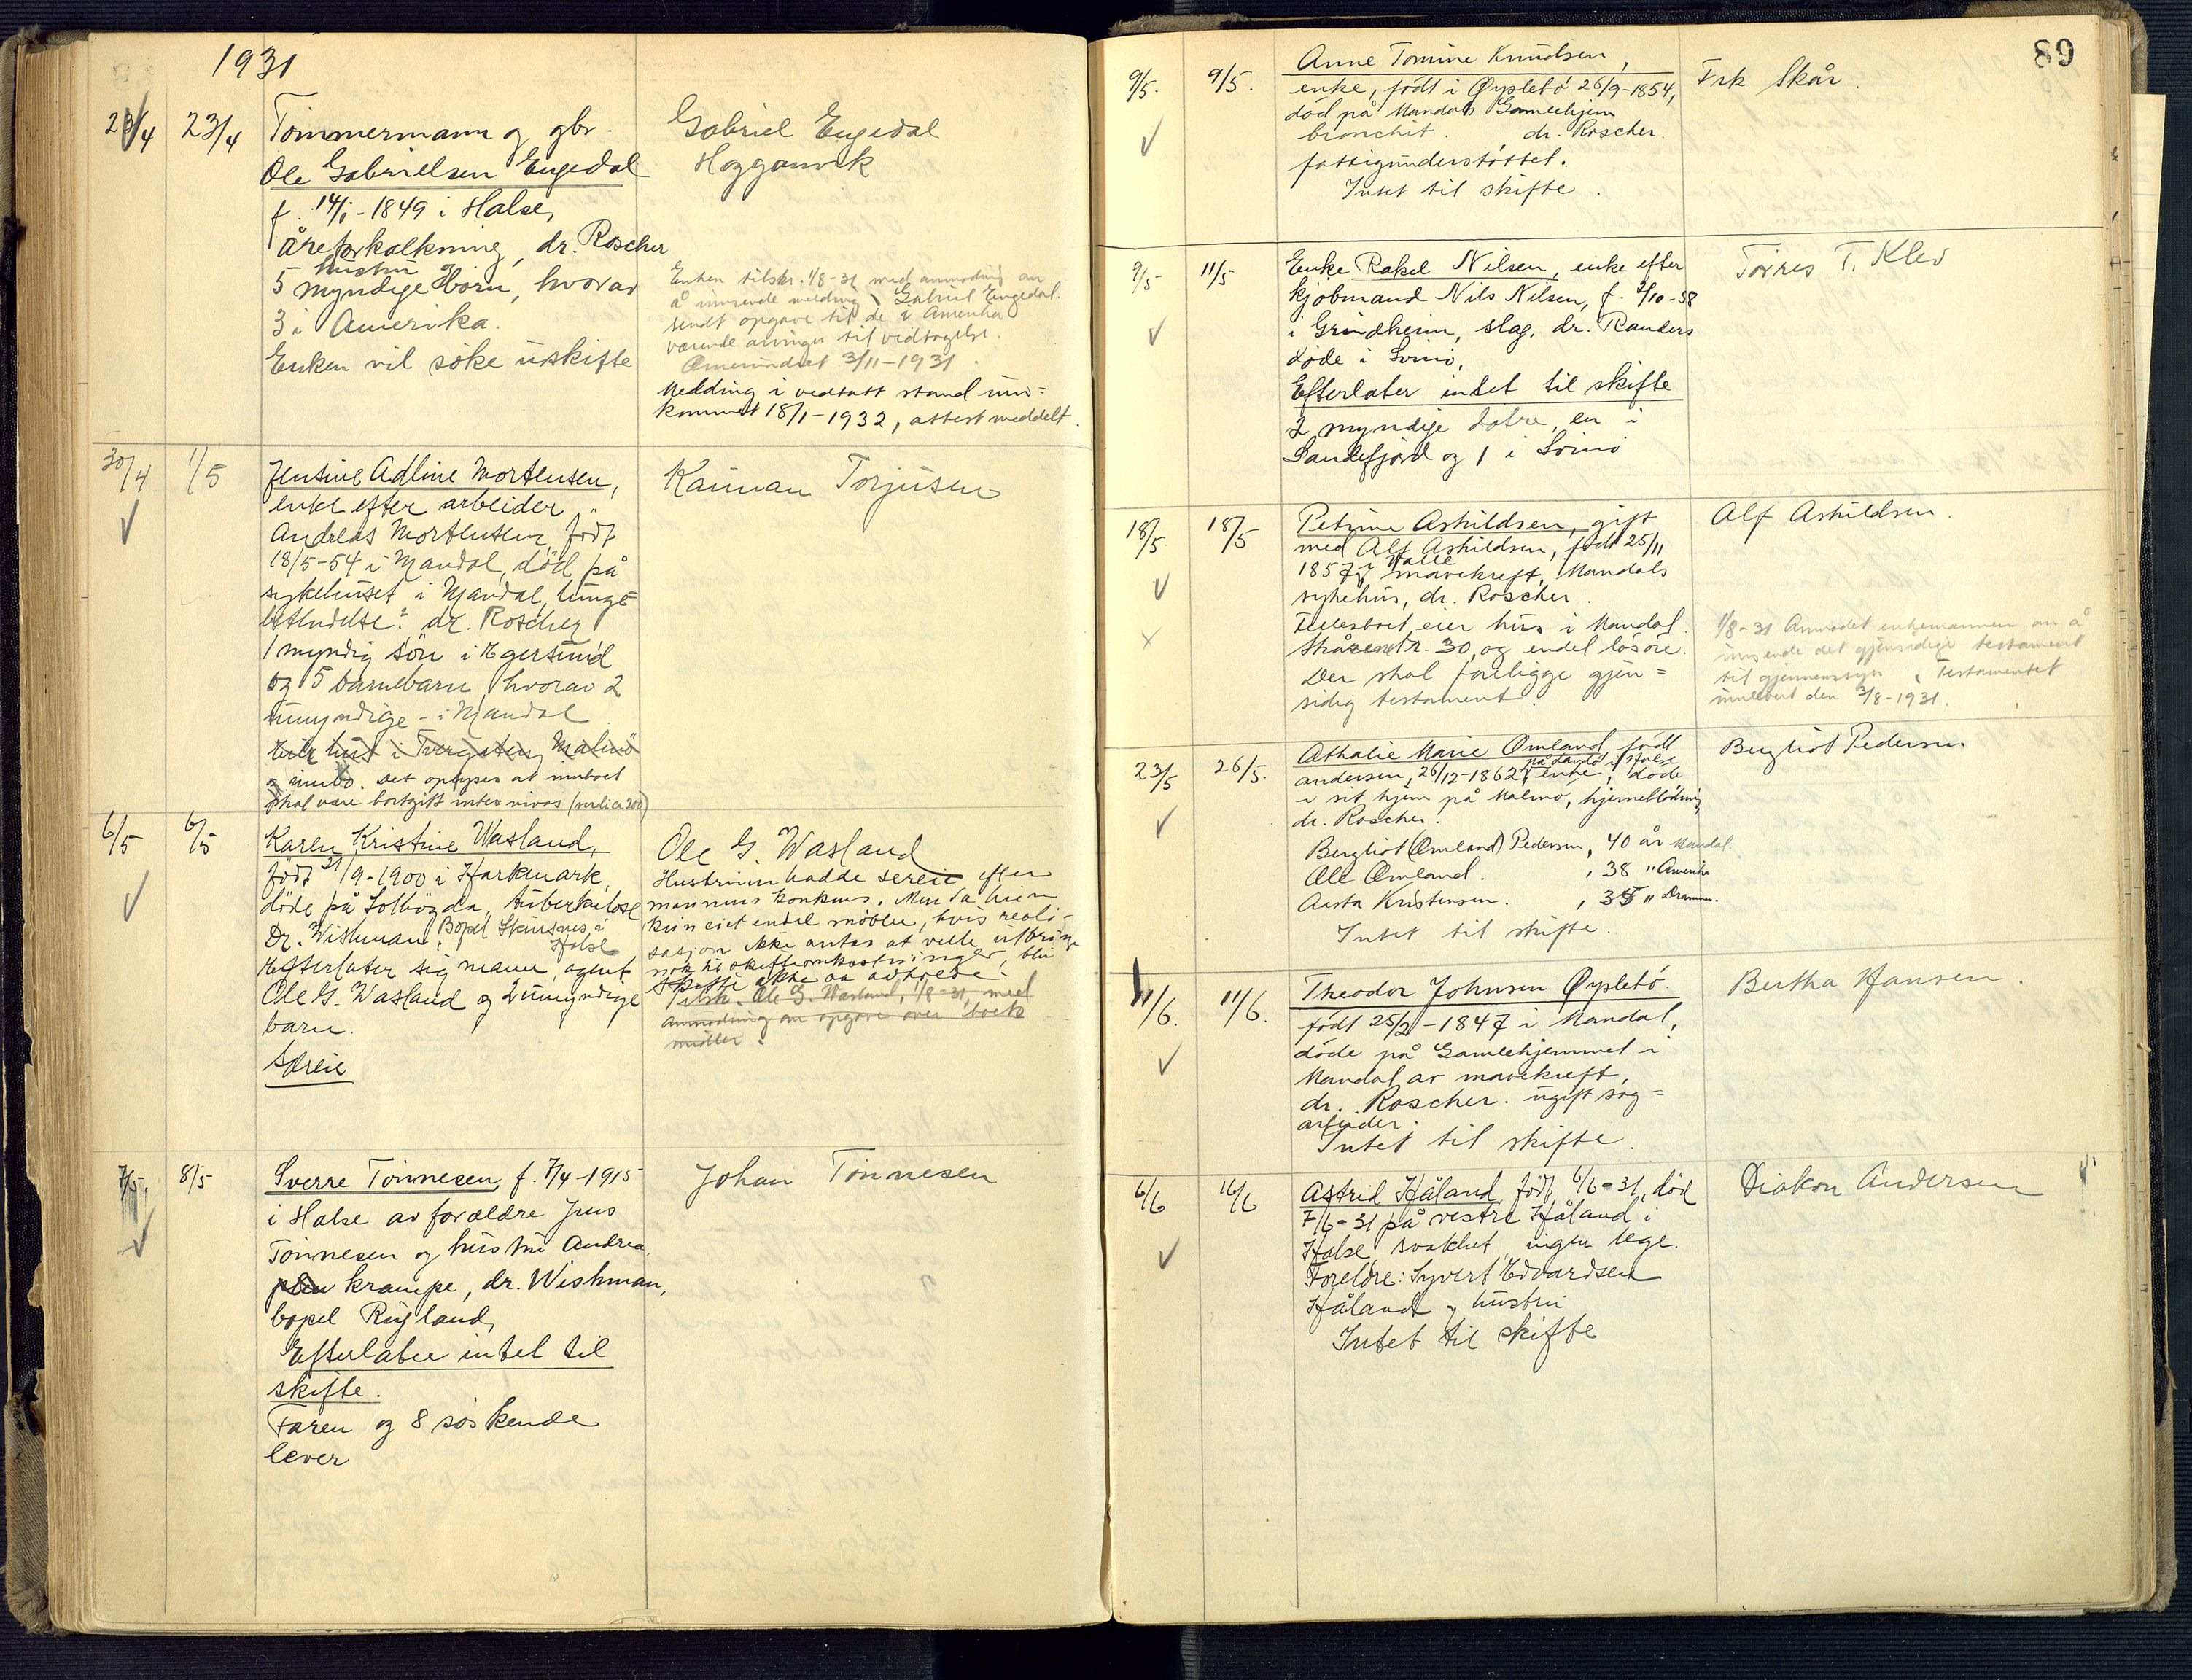 1931
23/4 23/4 Tømmermann og gbr. Gabriel Engedal
Ole Gabrielsen Engedal Hogganvik
f. 14/1-1849 i Halse,
åreforkalkning, dr. Roscher
hustru og
5 myndige børn, hvorav
3 i Amerika.
Enken vil søke uskifte
Enken tilskr. 1/8-31 med anmodning om
å innsende melding Gabriel Engedal
sendt opgave til de i Amerika
værende arvinger til vedtagelse.
3/11-1931.
Melding i vedtatt stand inn-
kommet 18/1-1932, attest meddelt.
30/4 1/5 Jensine Adline Mortensen, Torjusen
enke efter arbeider
Andreas Mortensen, født
18/5-54 i Mandal, død på
sykehuset i Mandal, lunge-
betendelse? dr. Roscher
1 myndig søn i Egersund
og 5 barnebarn, hvorav 2
umyndige - i Mandal
Eier hus i Malmø
og innbo. Det oplyses at innboet
skal være bortgitt inter vivos
6/5 6/5 Karen Kristine Wasland, Ole G. Wasland
født 21/9-1900 i Harkmark,
døde på Solhøgda, tuberkulose
Dr. Wishman, Bopel i
Halse
Efterlater sig mann, agent
Ole G. Wasland og 2 umyndige
barn.
Særeie
Hustruen hadde særeie efter
mannens konkurs. Men da hun
kun eiet endel møbler, hvis reali-
sasjon ikke antas at ville utbringe
nok til skifteomkostninger, blir
skifte ikke at avholde.
Tilskr. Ole G. Wasland, 1/8-31, med
anmodning om opgave over boets
midler.
7/5. 8/5 Sverre Tønnesen, f. 7/4-1915 Johan Tønnesen
i Halse av forældre Jens
Tønnesen og hustru Andrea.
krampe, dr. Wishman,
bopel Rugland,
Efterlater intet til
skifte.
Faren og 8 søskende
lever
89
9/5. 9/5. Anne Tomine Knudsen, Frk Skår.
enke, født i Øyslebø 26/9-1854,
død på Mandals Gamlehjem
bronchit. dr. Roscher.
fattigunderstøttet.
Intet til skifte.
9/5 11/5 Enke Rakel Nilsen, enke efter Tørres T. Klev
kjøbmand Nils Nilsen, f. 2/10-58
i Grindheim, slag, dr. Randers
døde i Svinø,
Efterlater intet til skifte
2 myndige døtre, en i
Sandefjord og 1 i Svinø
18/5 18/5 Petrine Askildsen, gift Alf Askildsen.
med Alf Askildsen, født 25/11
1857 i Halse, mavekreft, Mandals
sykehus, dr. Roscher.
Fellesboet eier hus i Mandal
30, og endel løsøre.
Der skal foreligge gjen-
sidig testament.
1/8-31 Anmodet enkemannen om å
innsende det gjensidige testament
til gjennemsyn. Testamentet
innlevert den 3/8-1931.
23/5 26/5. Athalie Marie Omland, født Bergliot Pedersen
Andersen, 26/12-1862, enke, døde
i sit hjem på Malmø, hjerneblødning,
dr. Roscher.
Bergliot (Omland) Pedersen, 40 år Mandal
Ole Omland. , 38 " Amerika
Aasta Kristensen. , 35 " Drammen.
Intet til skifte.
11/6. 11/6. Theodor Johnsen Øyslebø. Bertha Hansen.
født 25/2-1847 i Mandal,
døde på Gamlehjemmet i
Mandal av mavekreft,
dr. Roscher. ugift sag-
arbeider.
Intet til skifte.
6/6 16/6 Astrid Håland, født 6/6-31, død Diakon Andersen
7/6-31 på vestre Håland i
Halse, svakhet, ingen læge.
Foreldre: Syvert Edvardsen
Håland og hustru
Intet til skifte